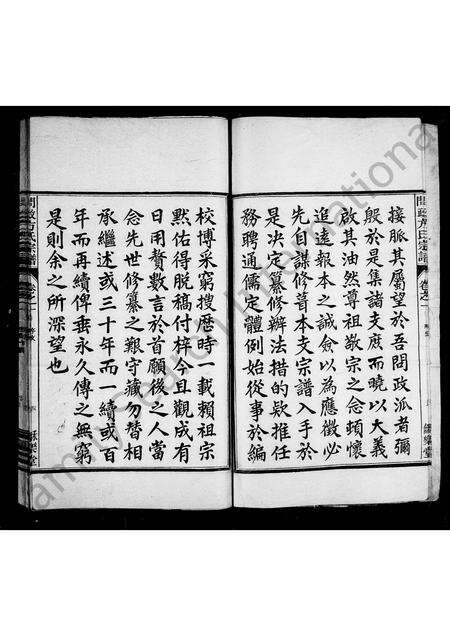 接脈其屬望於吾問政派者彌
殷於是集諸支庶而曉以大義
啟其油然尊祖敬宗之念頓懷
追遠報本之誠僉以為應徵必
先自謀修葺本支宗譜入手於
是決定纂修辦法措的款推任
務聘通儒定體例始從事於編
校博采窮搜歷時一載賴祖宗
黙佑得脱稿付梓今且觀成有
日用贅數言於首願後之人當
念先世修纂之艱守藏勿替相
承繼述或三十年而一續或百
年而再續俾垂永久傳之無窮
是則余之所深望也
問政方氏宗譜
卷之一